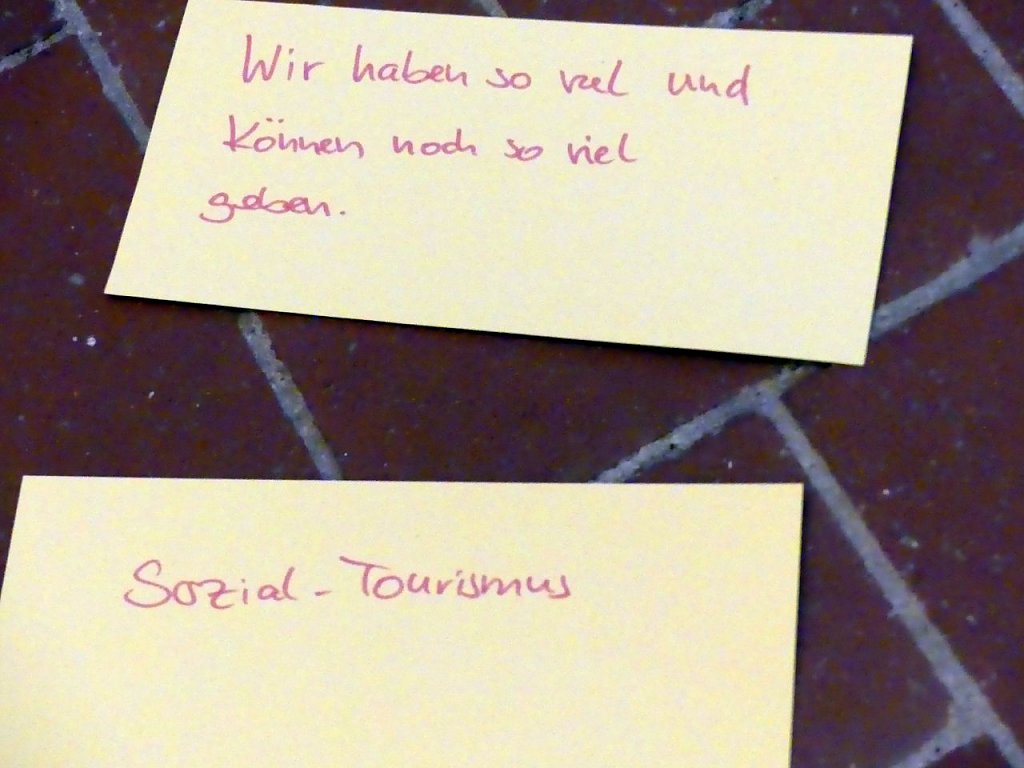 Wir haben so viel und
können noch so viel
geben.
Sozial-Tourismus